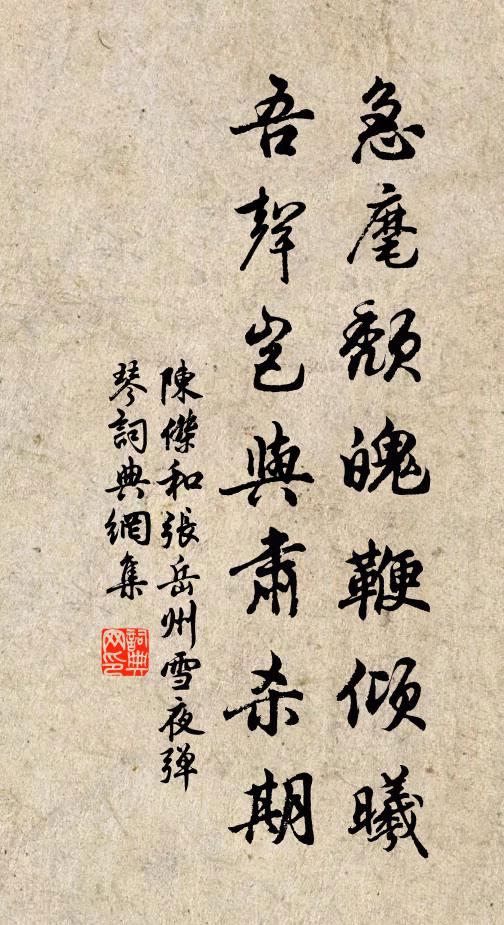 急麾頹魄鞭傾曦
吾聲豈與肅杀期
陳傑和張岳州雪夜弹
琴詞典網集
詞典网印